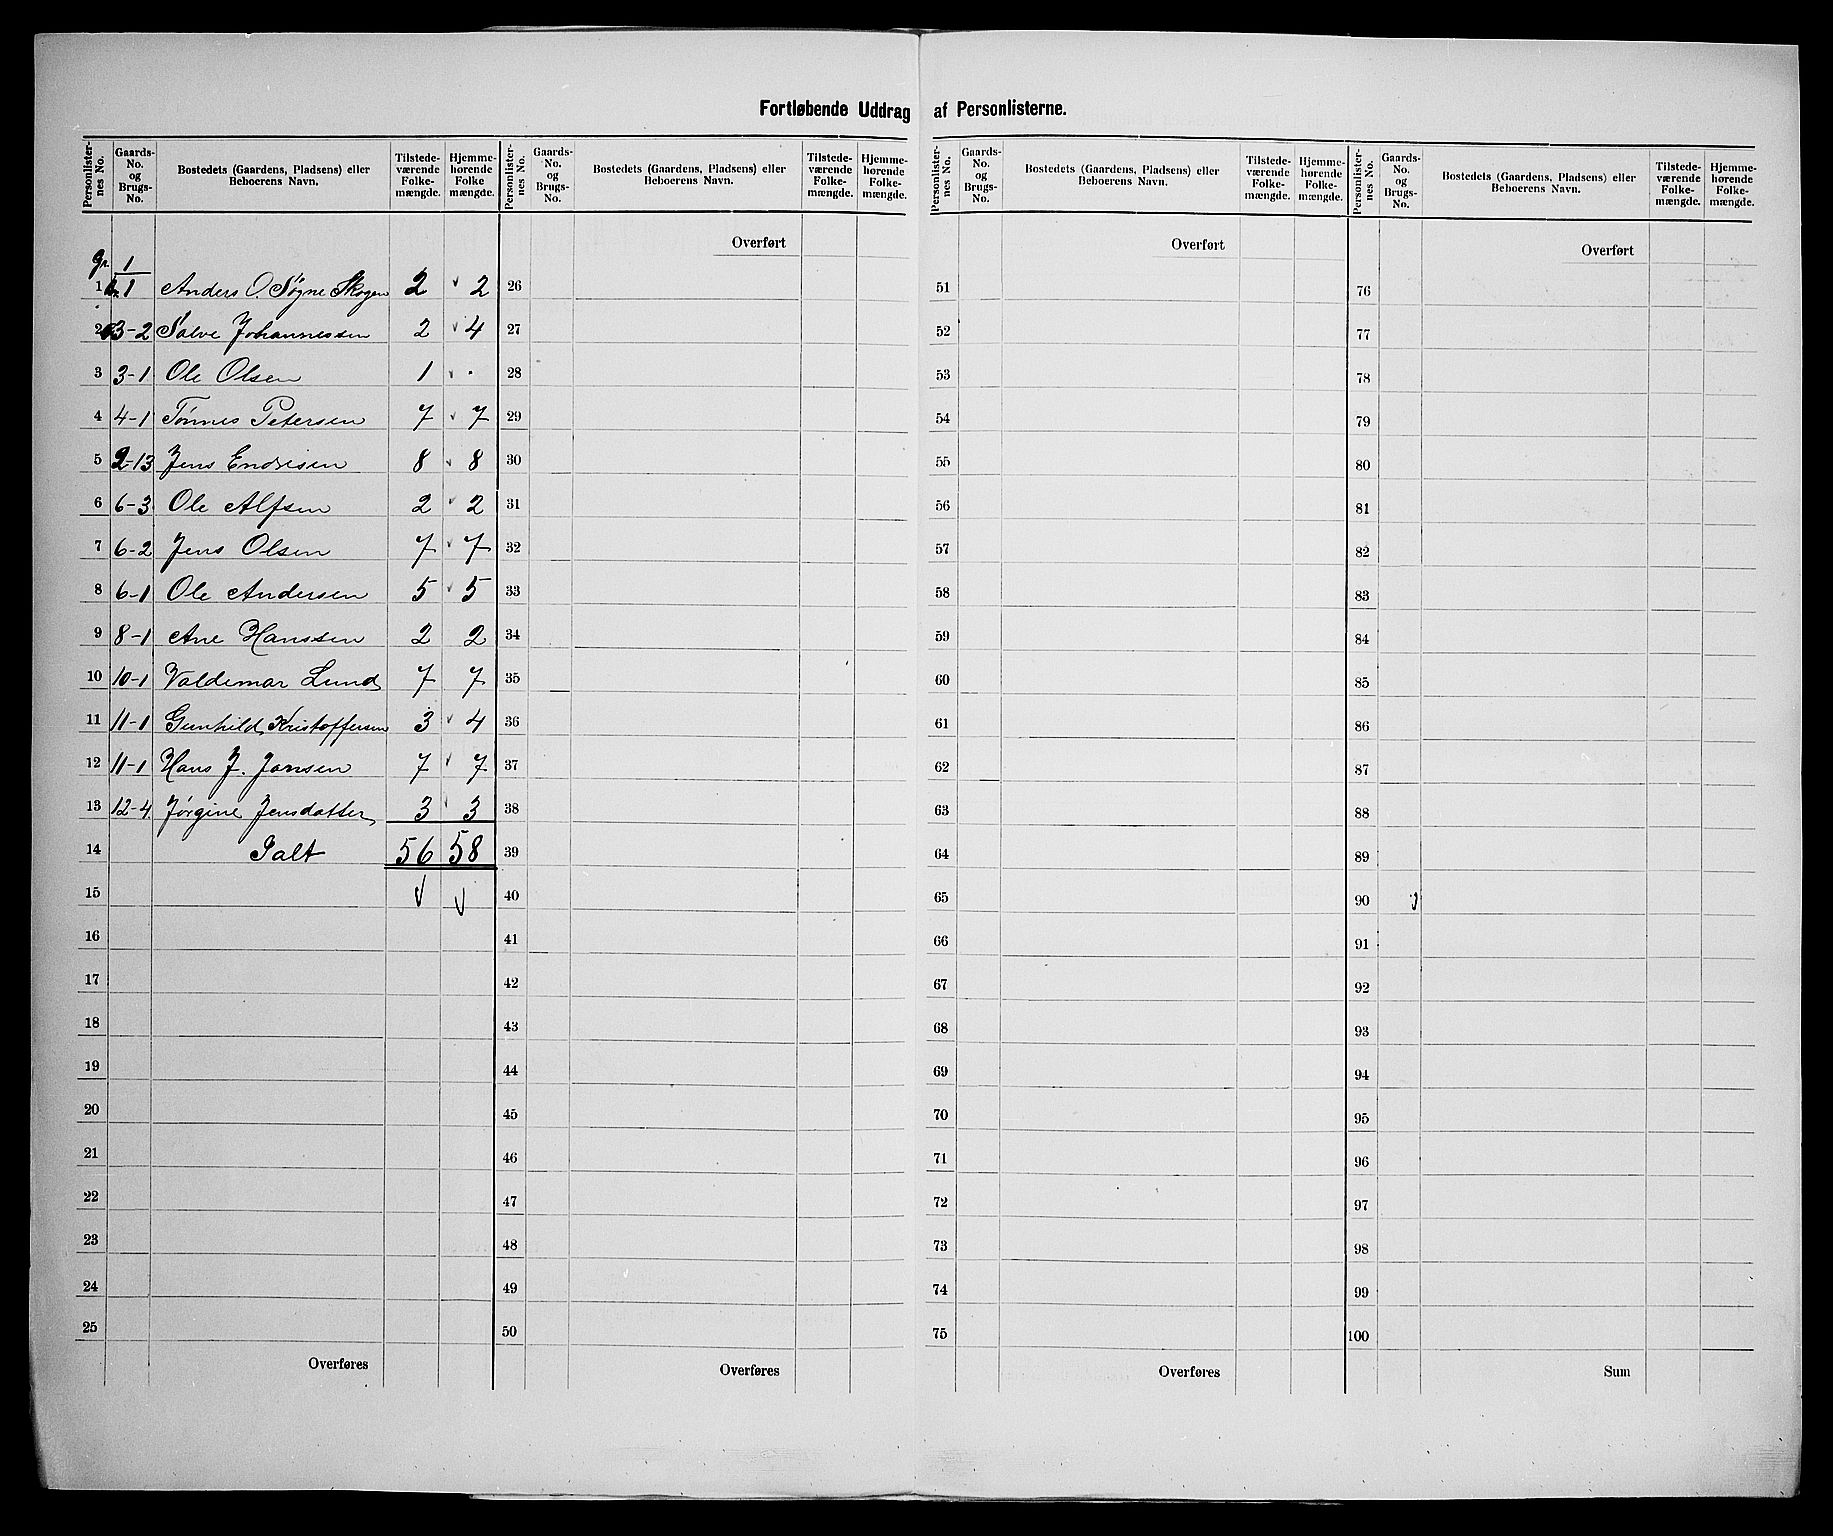 Fortløbende Uddrag af Personlisterne.
Personlister-nes No. | Gaards-No. og Brugs-No. | Bostedets (Gaardens, Pladsens) eller Beboerens Navn. | Tilstede-værende Folke-mængde. | Hjemme-hørende Folke mængde.
Personlister-nes No. | Gaards-No. og Brugs-No. | Bostedets (Gaardens, Pladsens) eller Beboerens Navn. | Tilstede-værende Folke-mængde. | Hjemme-hørende Folke-mængde.
Personlister-nes No. | Gaards-No. og Brugs-No. | Bostedets (Gaardens, Pladsens) eller Beboerens Navn. | Tilstede-værende Folke-mængde. | Hjemme-hørende Folke-mængde.
Personlister-nes No. | Gaards-No. og Brugs-No. | Bostedets (Gaardens, Pladsens) eller Beboerens Navn. | Tilstede-værende Folke-mængde. | Hjemme-hørende Folke-mængde.
Gr. 1
1 1 Anders O. Søgne Skogen 2 2
2 3-2 Salve Johannessen 2 4
3 3-1 Ole Olsen 1 .
4 4-1 Tønnes Petersen 7 7
5 2-13 Jens Endresen 8 8
6 6-3 Ole Alfsen 2 2
7 6-2 Jens Olsen 7 7
8 6-1 Ole Andersen 5 5
9 8-1 Ane Hanssen 2 2
10 10-1 Valdemar Lund 7 7
11 11-1 Gunhild Kristoffersen 3 4
12 11-1 Hans J. Jansen 7 7
13 12-4 Jørgine Jensdatter 3 3
14 Ialt 56 58
15
16
17
18
19
20
21
22
23
24
25
Overføres
Overført
26
27
28
29
30
31
32
33
34
35
36
37
38
39
40
41
42
43
44
45
46
47
48
49
50
Overføres
Overført
51
52
53
54
55
56
57
58
59
60
61
62
63
64
65
66
67
68
69
70
71
72
73
74
75
Overføres
Overført
76
77
78
79
80
81
82
83
84
85
86
87
88
89
90
91
92
93
94
95
96
97
98
99
100
Sum